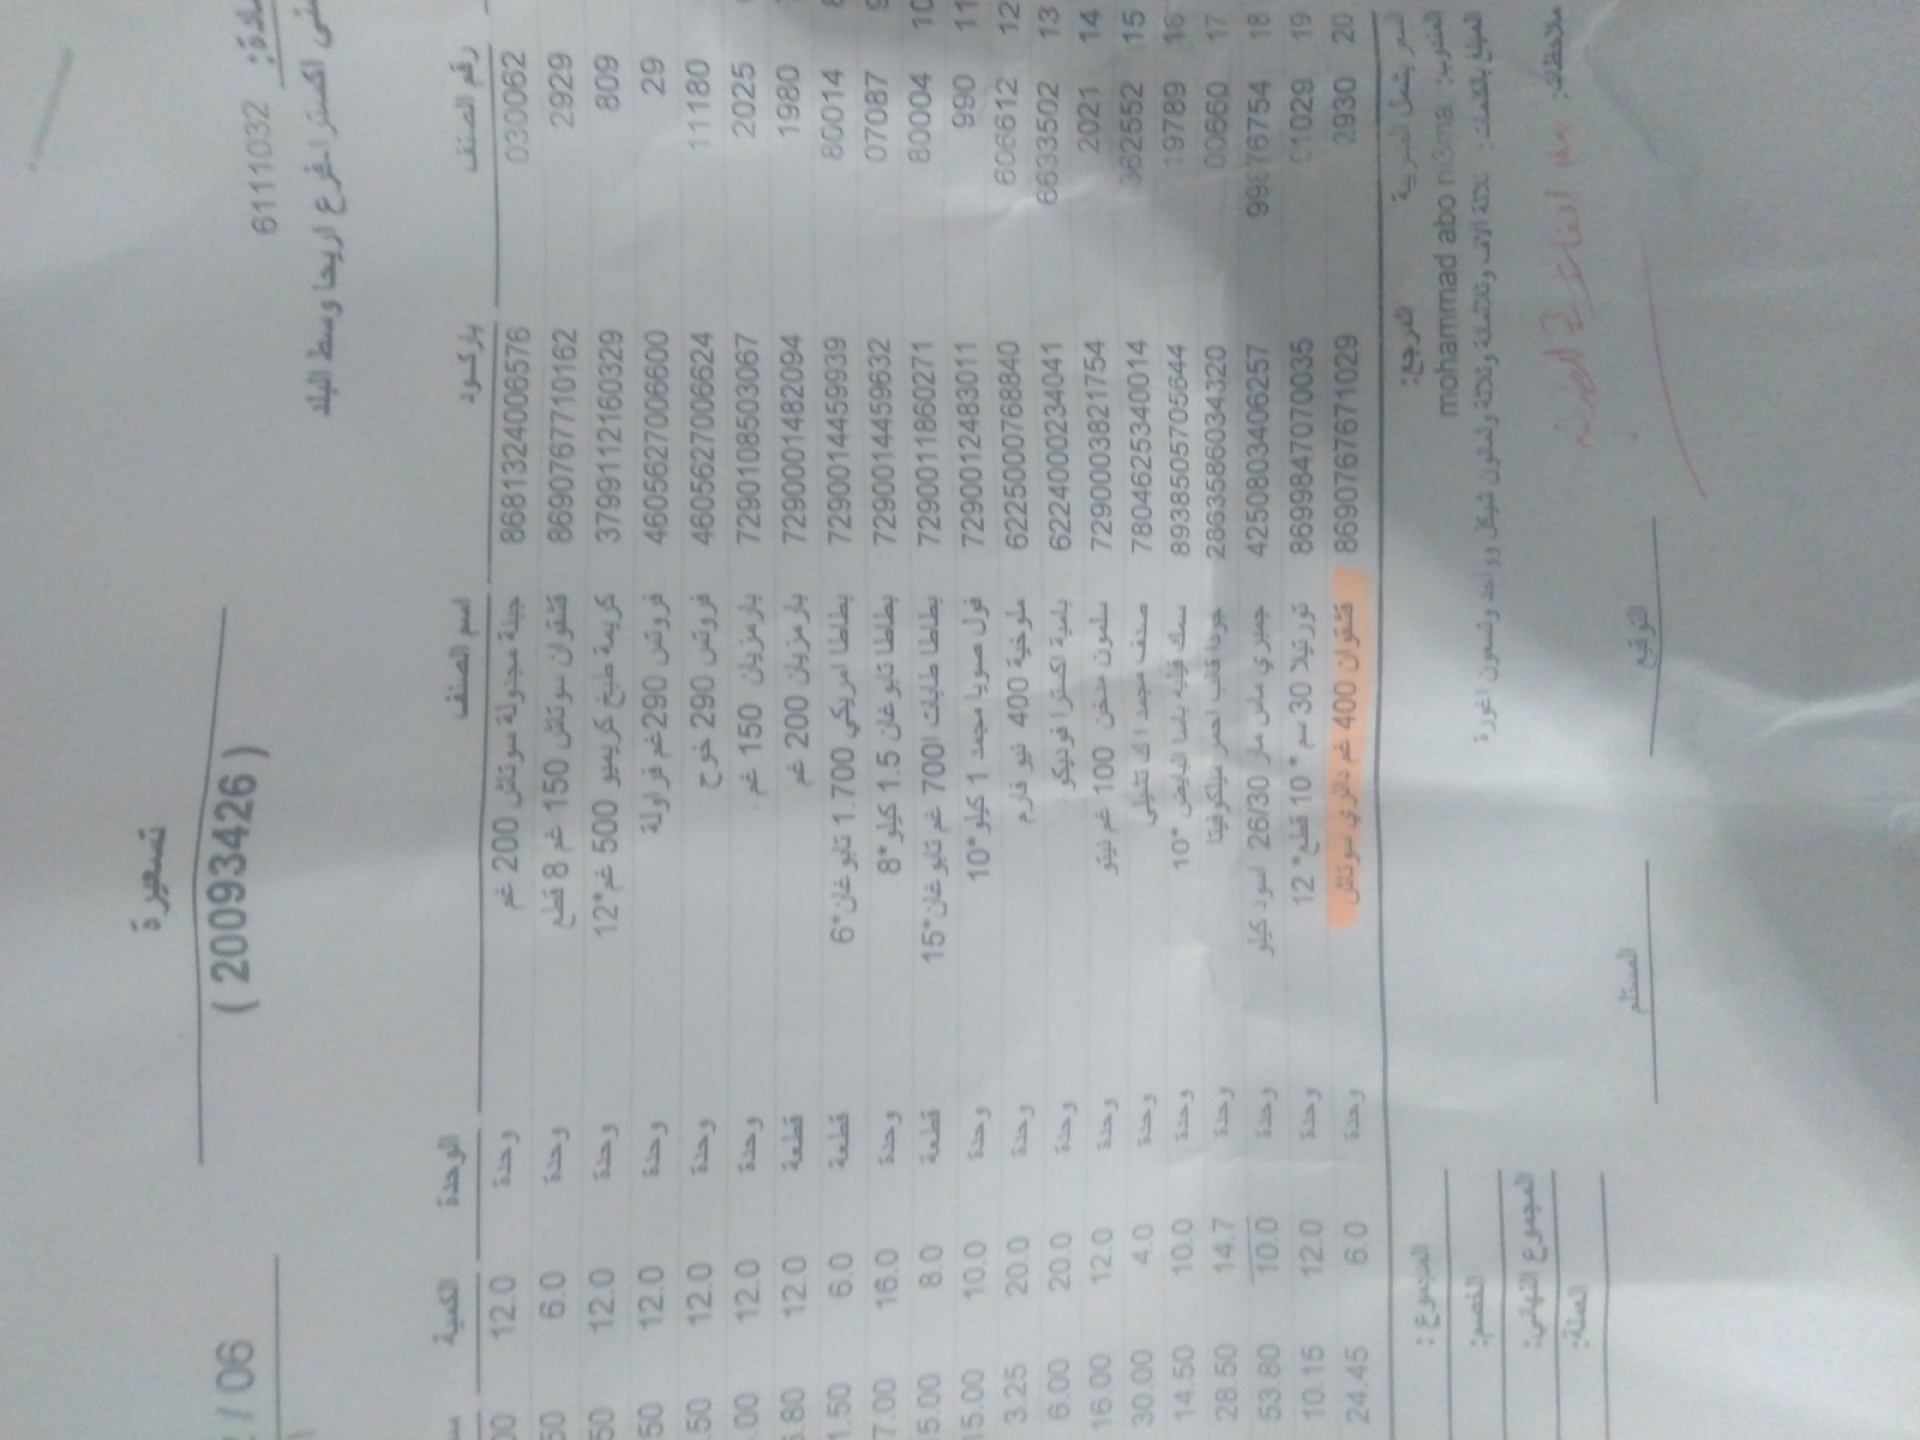 تسعيرة
( 20093426 )
/ 06
61111032
اكسترا فرع اريحا وسط البلد
رقم الصنف باركود اسم الصنف الوحدة الكمية
030062 8681324006576 جبنة مجدولة سوتاش 200 غم وحدة 12.0
2929 8690767710162 قشقوان سوتاش 150 غم 8 قطع وحدة 6.0
809 3799112160329 كريمة طبخ كريمبو 500 غم*12 وحدة 12.0
29 4605627006600 فروتس 290غم فراولة وحدة 12.0
11180 4605627006624 فروتس 290 خوخ وحدة 12.0
2025 7290108503067 بارمزيان 150 غم وحدة 12.0
1980 7290001482094 بارمزيان 200 غم قطعة 12.0
80014 7290014459939 بطاطا امريكي 1.700 تابوغان*6 قطعة 6.0
07087 7290014459632 بطاطا تابوغان 1.5 كيلو*8 وحدة 16.0
10 80004 7290011860271 بطاطا طابات 700 غم تابوغان*15 قطعة 8.0
11 990 7290012483011 فول صويا مجمد 1 كيلو*10 وحدة 10.0 15.00
12 6066612 6225000768840 ملوخية 400 نيو فارم وحدة 20.0 3.25
13 6633502 6224000234041 بامية اكسترا فونيكو وحدة 20.0 6.00
14 2021 7290003821754 سلمون مدخن 100 غم نيتو وحدة 12.0 16.00
15 362552 7804625340014 صدف مجمد وحدة 4.0 30.00
16 19789 8938505705644 سمك فيليه باسا ابيض *10 وحدة 10.0 14.50
17 00660 2863586034320 جودا قالب احمر ميلكوفيتا وحدة 14.7 28.50
18 99876754 4250803406257 جمبري ماس مار 26/30 اسود كيلو وحدة 10.0 53.80
19 01029 8699847070035 تورتيلا 30 سم * 10 قطع* 12 وحدة 12.0 10.15
20 2930 8690767671029 قشقوان 400 غم دائري سوتاش وحدة 6.0 24.45
السعر يشمل الضريبة المرجع: المجموع :
المندوب: mohammad abo n3ma الخصم:
المبلغ بالكلمات: ثلاثة الاف وثلاثمائة وثلاثة وثمانون شيكل وواحد وتسعون اغورة
المجموع النهائي:
العملة:
ملاحظات:
التوقيع المستلم